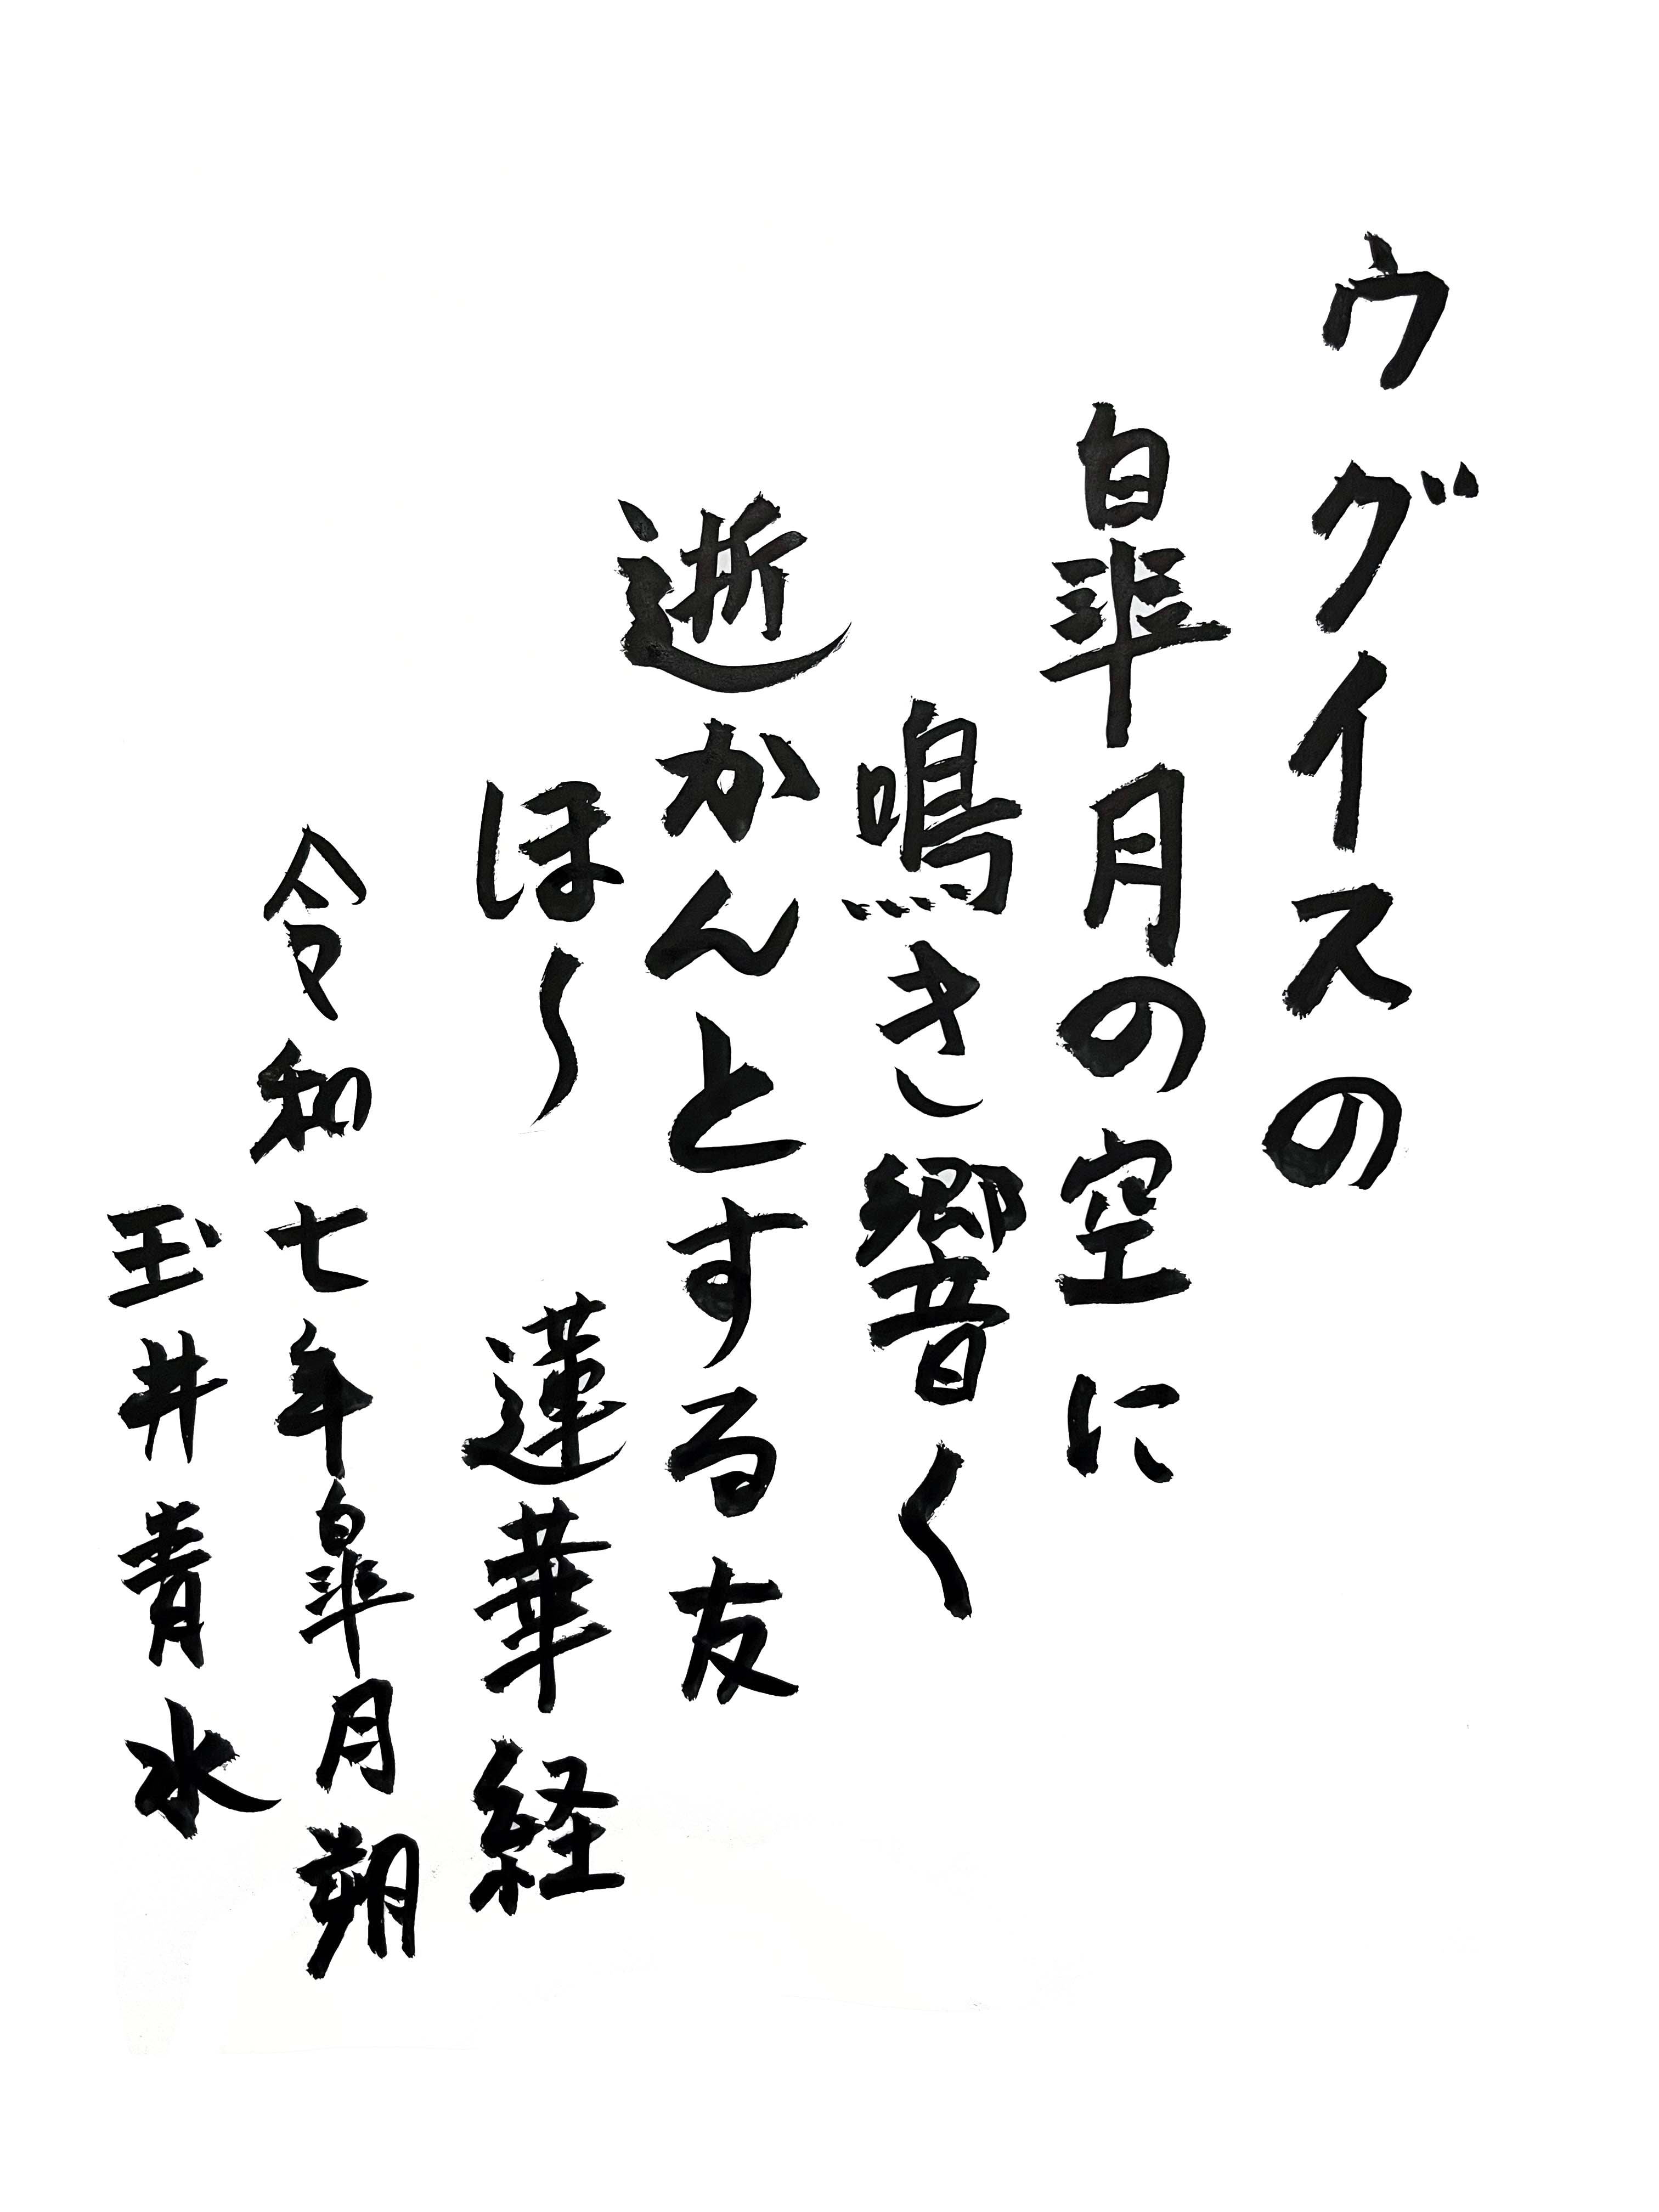 ウグイスの
皐月の空に
鳴き響く
逝かんとする友
ほ〜 蓮華経
令和七年皐月朔
玉井青水